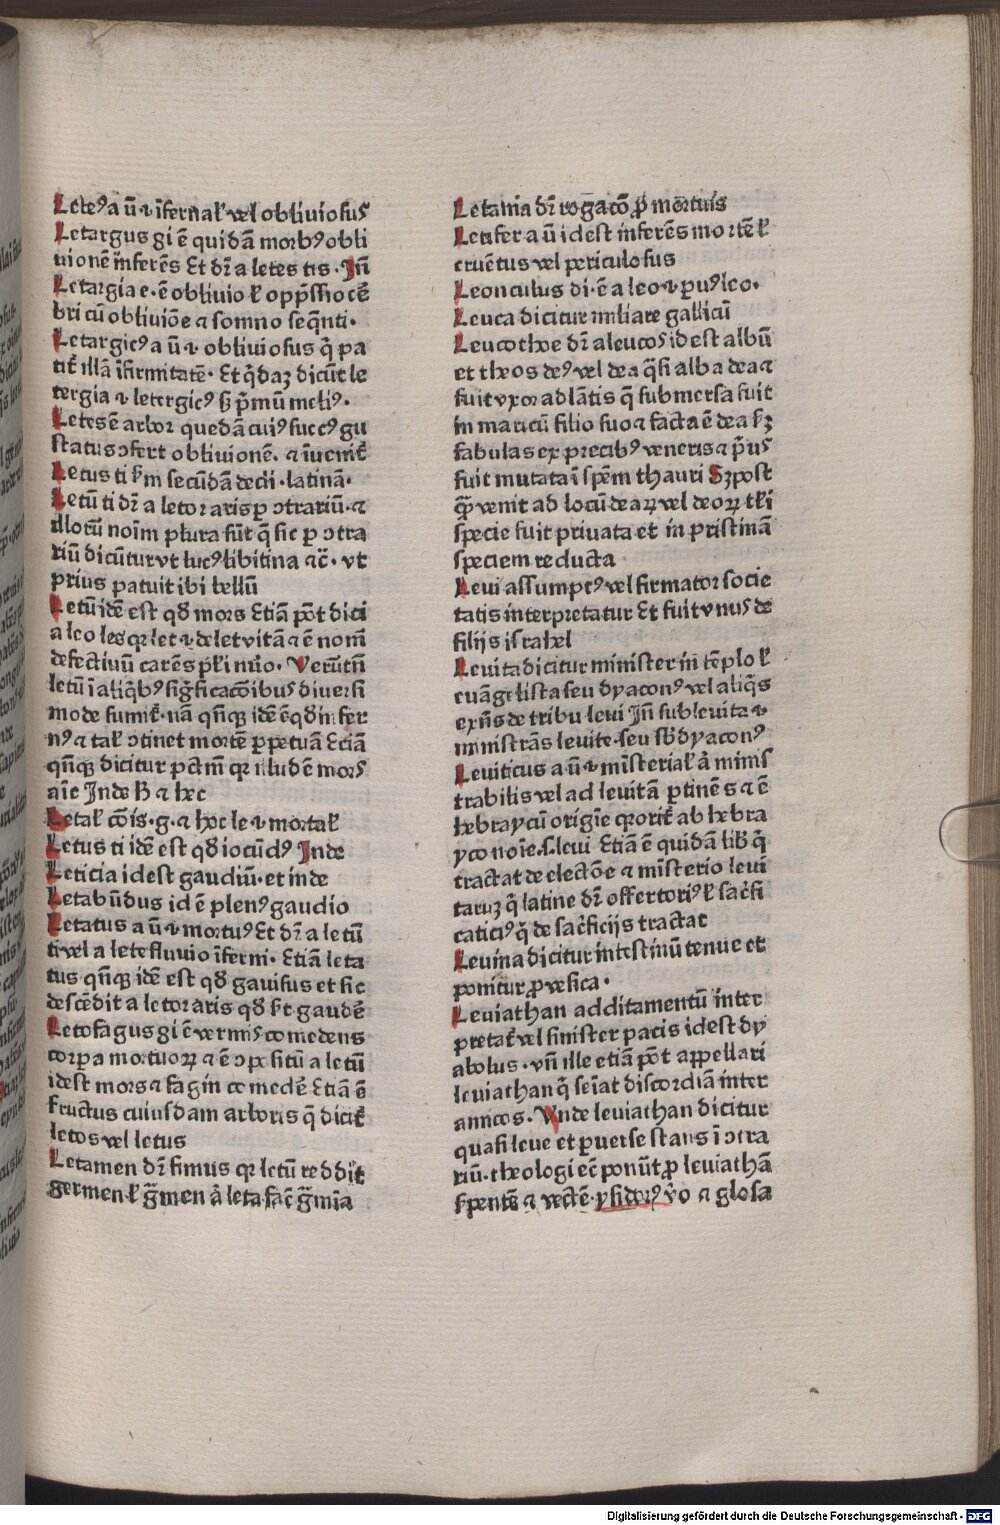 Leteꝰ a ū ⁊ īfernał vel obliuiosus
Letargus gi ē quidā morbꝰ obli
uionē inferēs Et dr̄ a letes tis. Jn̄
Letargia e. ē obliuio ł opp̄ssio cē
bri cū obliuiōe ⁊ somno seq̄nti.
Letargicꝰ a ū ⁊ obliuiosus q̇ pa
tit illā īfirmitatē. Et q̇daꝫ dicūt le
tergia ⁊ letergicꝰ ß p̄mū meliꝰ.
Letes ē arbor quedā cuiꝰ succꝰ gu
status ↄfert obliuionē. ⁊ īuenit̄
Letus ti s̄m secūdā decli. latinā.
Letū ti dr̄ a letor aris ꝑ ↄtrariū. ⁊
illorū noīm plura sūt q̄ sic ꝑ ↄtra
riū dicūtur vt lucꝰ libitina ⁊c̄. vt
prius patuit ibi bellū
Letū idē est qd̄ mors Etiā pōt dici
a leo les qr let ⁊ delet vitā ⁊ ē nomē
defectiuū carēs płi nūo. Verūtn̄
letū ī aliq̇bꝰ sig̅ficacōibus diuersi
mode sumit̄. nā qn̄qꝫ idē ē qd̄ infer
nꝰ ⁊ tał ↄtinet mortē ꝑpetuā Etiā
qn̄qꝫ dicitur pctm̄ qr illud ē mors
aīe Jnde h̄ ⁊ hec
Letał cōis. g. ⁊ hoc le ⁊ mortał
Letus ti idē est qd̄ iocūdꝰ Jnde
Leticia idest gaudiū. et inde
Letabūdus id ē plenꝰ gaudio
Letatus a ū ⁊ mortuꝰ Et dr̄ a letū
ti vel a lete fluuio īferni. Etiā leta
tus qn̄qꝫ idē est qd̄ gauisus et sic
descēdit a letor aris qd̄ st gaudē
Letofagus gi ē vermis comedens
corpa mortuoꝝ ⁊ ē ↄpositū a letū
idest mors ⁊ fagin comedē Etiā ē
fructus cuiusdam arboris q̄ dicit̄
letos vel letus
Letamen dr̄ fimus qr letū reddit
germen ł g̅men ā leta fac̄ g̅mīa
Letania dr̄ rogacō ꝓ mortuis
Letifer a ū idest inferēs mortē ł
cruētus vel periculosus
Leonculus di. ē a leo ⁊ ꝑuꝰ leo.
Leuca dicitur miliare gallicū
Leucothoe dr̄ a leucos idest albū
et theos deꝰ vel dea q̄si alba dea ⁊
fuit vxor adlātis q̄ submersa fuit
in mari cū filio suo ⁊ facta ē dea s̄ꝫ
fabulas ex precibꝰ veneris ⁊ p̄us
fuit mutata ī spēm thauri Sꝫ post
q̄ venit ad locū deaꝝ vel deoꝝ tłi
specie fuit priuata et in pristinā
speciem reducta
Leui assumptꝰ vel firmator socie
tatis interpretatur Et fuit vnus de
filijs israhel
Leuita dicitur minister in tēplo ł
euāgelista seu dyaconꝰ vel aliq̇s
exn̄s de tribu leui Jn̄ subleuita ⁊
ministrās leuite. seu sb̄dyaconꝰ
Leuiticus a ū ⁊ mīsteriał ā minis
trabilis vel ad leuitā ꝑtinēs ⁊ ē
hebray cū origīe qr orit̄ ab hebra
yco noīe. s. leui Etiā ē quidā lib̄ q̇
tractat de electōe ⁊ mīsterio leui
taruꝫ q̇ latine dr̄ offertoriꝰ ł sac̄fi
caticiꝰ q̇ de sac̄ficijs tractat
Leuina dicitur intestinū tenue et
ponitur ꝓ vesica.
Leuiathan additamentū inter
pretat̄ vel sinister pacis idest dy
abolus. vn̄ ille etiā pōt appellari
leuiathan q̇ seīat discordiā inter
amicos. Vnde leuiathan dicitur
quasi leue et ꝑuerse stans ī ↄtra
riū. theologi ec̄ ponūt ꝓ leuiathā
s̄pentē ⁊ vectē. ysidorꝰ v̇o ⁊ glosa
Digitalisierung gefördert durch die Deutsche Forschungsgemeinschaft - DFG